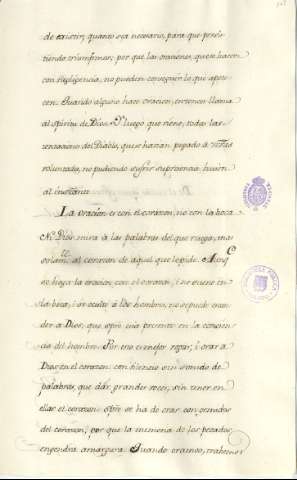 de existir, quanto sea necesario, para que persis
tiendo triumfemos, por que las oraciones, que se hacen
con negligencia, no pueden conseguir lo que apete
cen. Quando alguno hace oracion, entonces llama
al spiritu de Dios. Y luego que viene, todas las
tentaciones del Diablo, que se havian pegado à ntras
voluntades, no pudiendo sufrir su presencia huien
al instante
La oración es con el corazon, no con la boca
Ni Dios mira à las palabras del que ruega, mas
solamte al corazon de aquel que le pide. Aunqe
se haga la oracion con el corazon, i no suene en
la boca, i se oculte à los hombres, no se puede escon
der à Dios, que está presente en la concien
cia del hombre. Por eso es mejor rogar, i orar à
Dios en el corazon con silencio sin sonido de
palabras, que dàr grandes voces, sin tener en
ellas el corazon. Spre se ha de orar con gemidos
del corazon, por que la memoria de los pecados,
engendra amargura. Quando oramos, trahemos